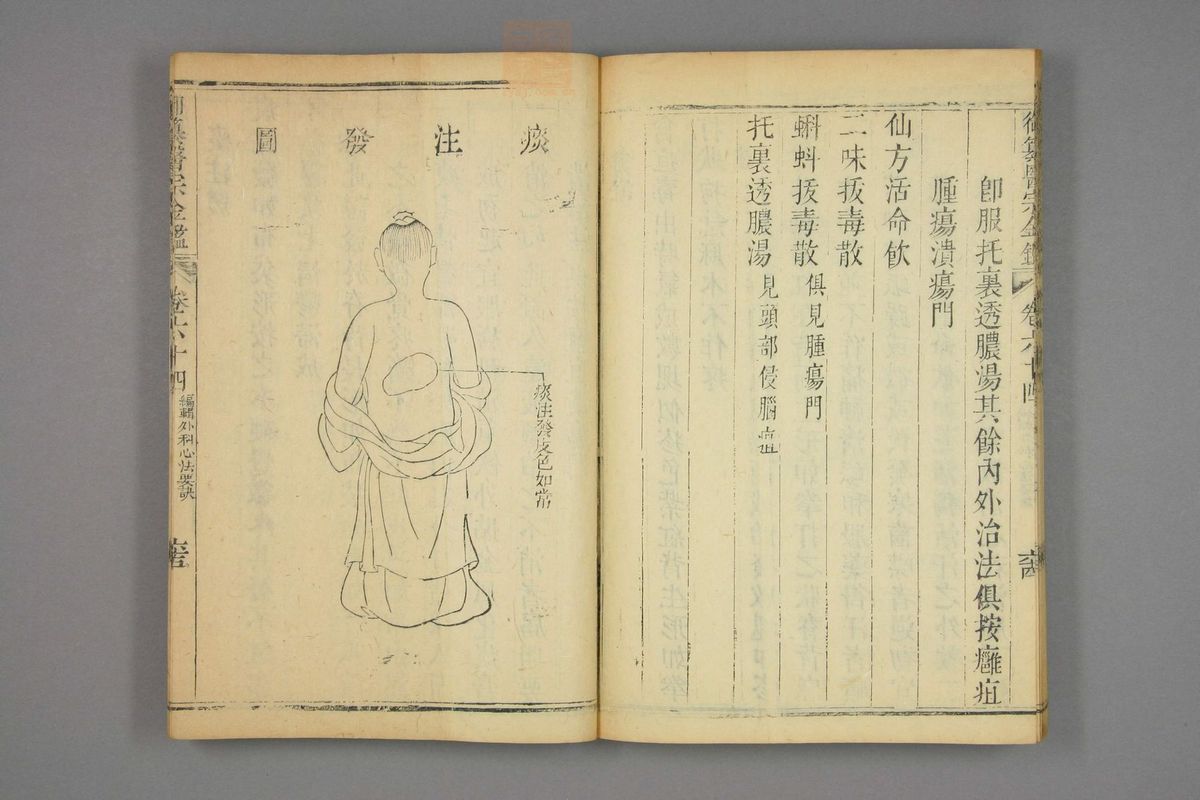 御纂醫宗金鑑 卷六十四
卽服托裏透膿湯其餘內外治法俱按癰疽
腫瘍潰瘍門
仙方活命飮
二味拔毒散
蝌蚪拔毒散 俱見腫瘍門
托裏透膿湯 見頭部侵腦疽
痰注發圖
痰注發皮色如常
御纂醫宗金鑑 卷六十四 編輯外科心法要訣